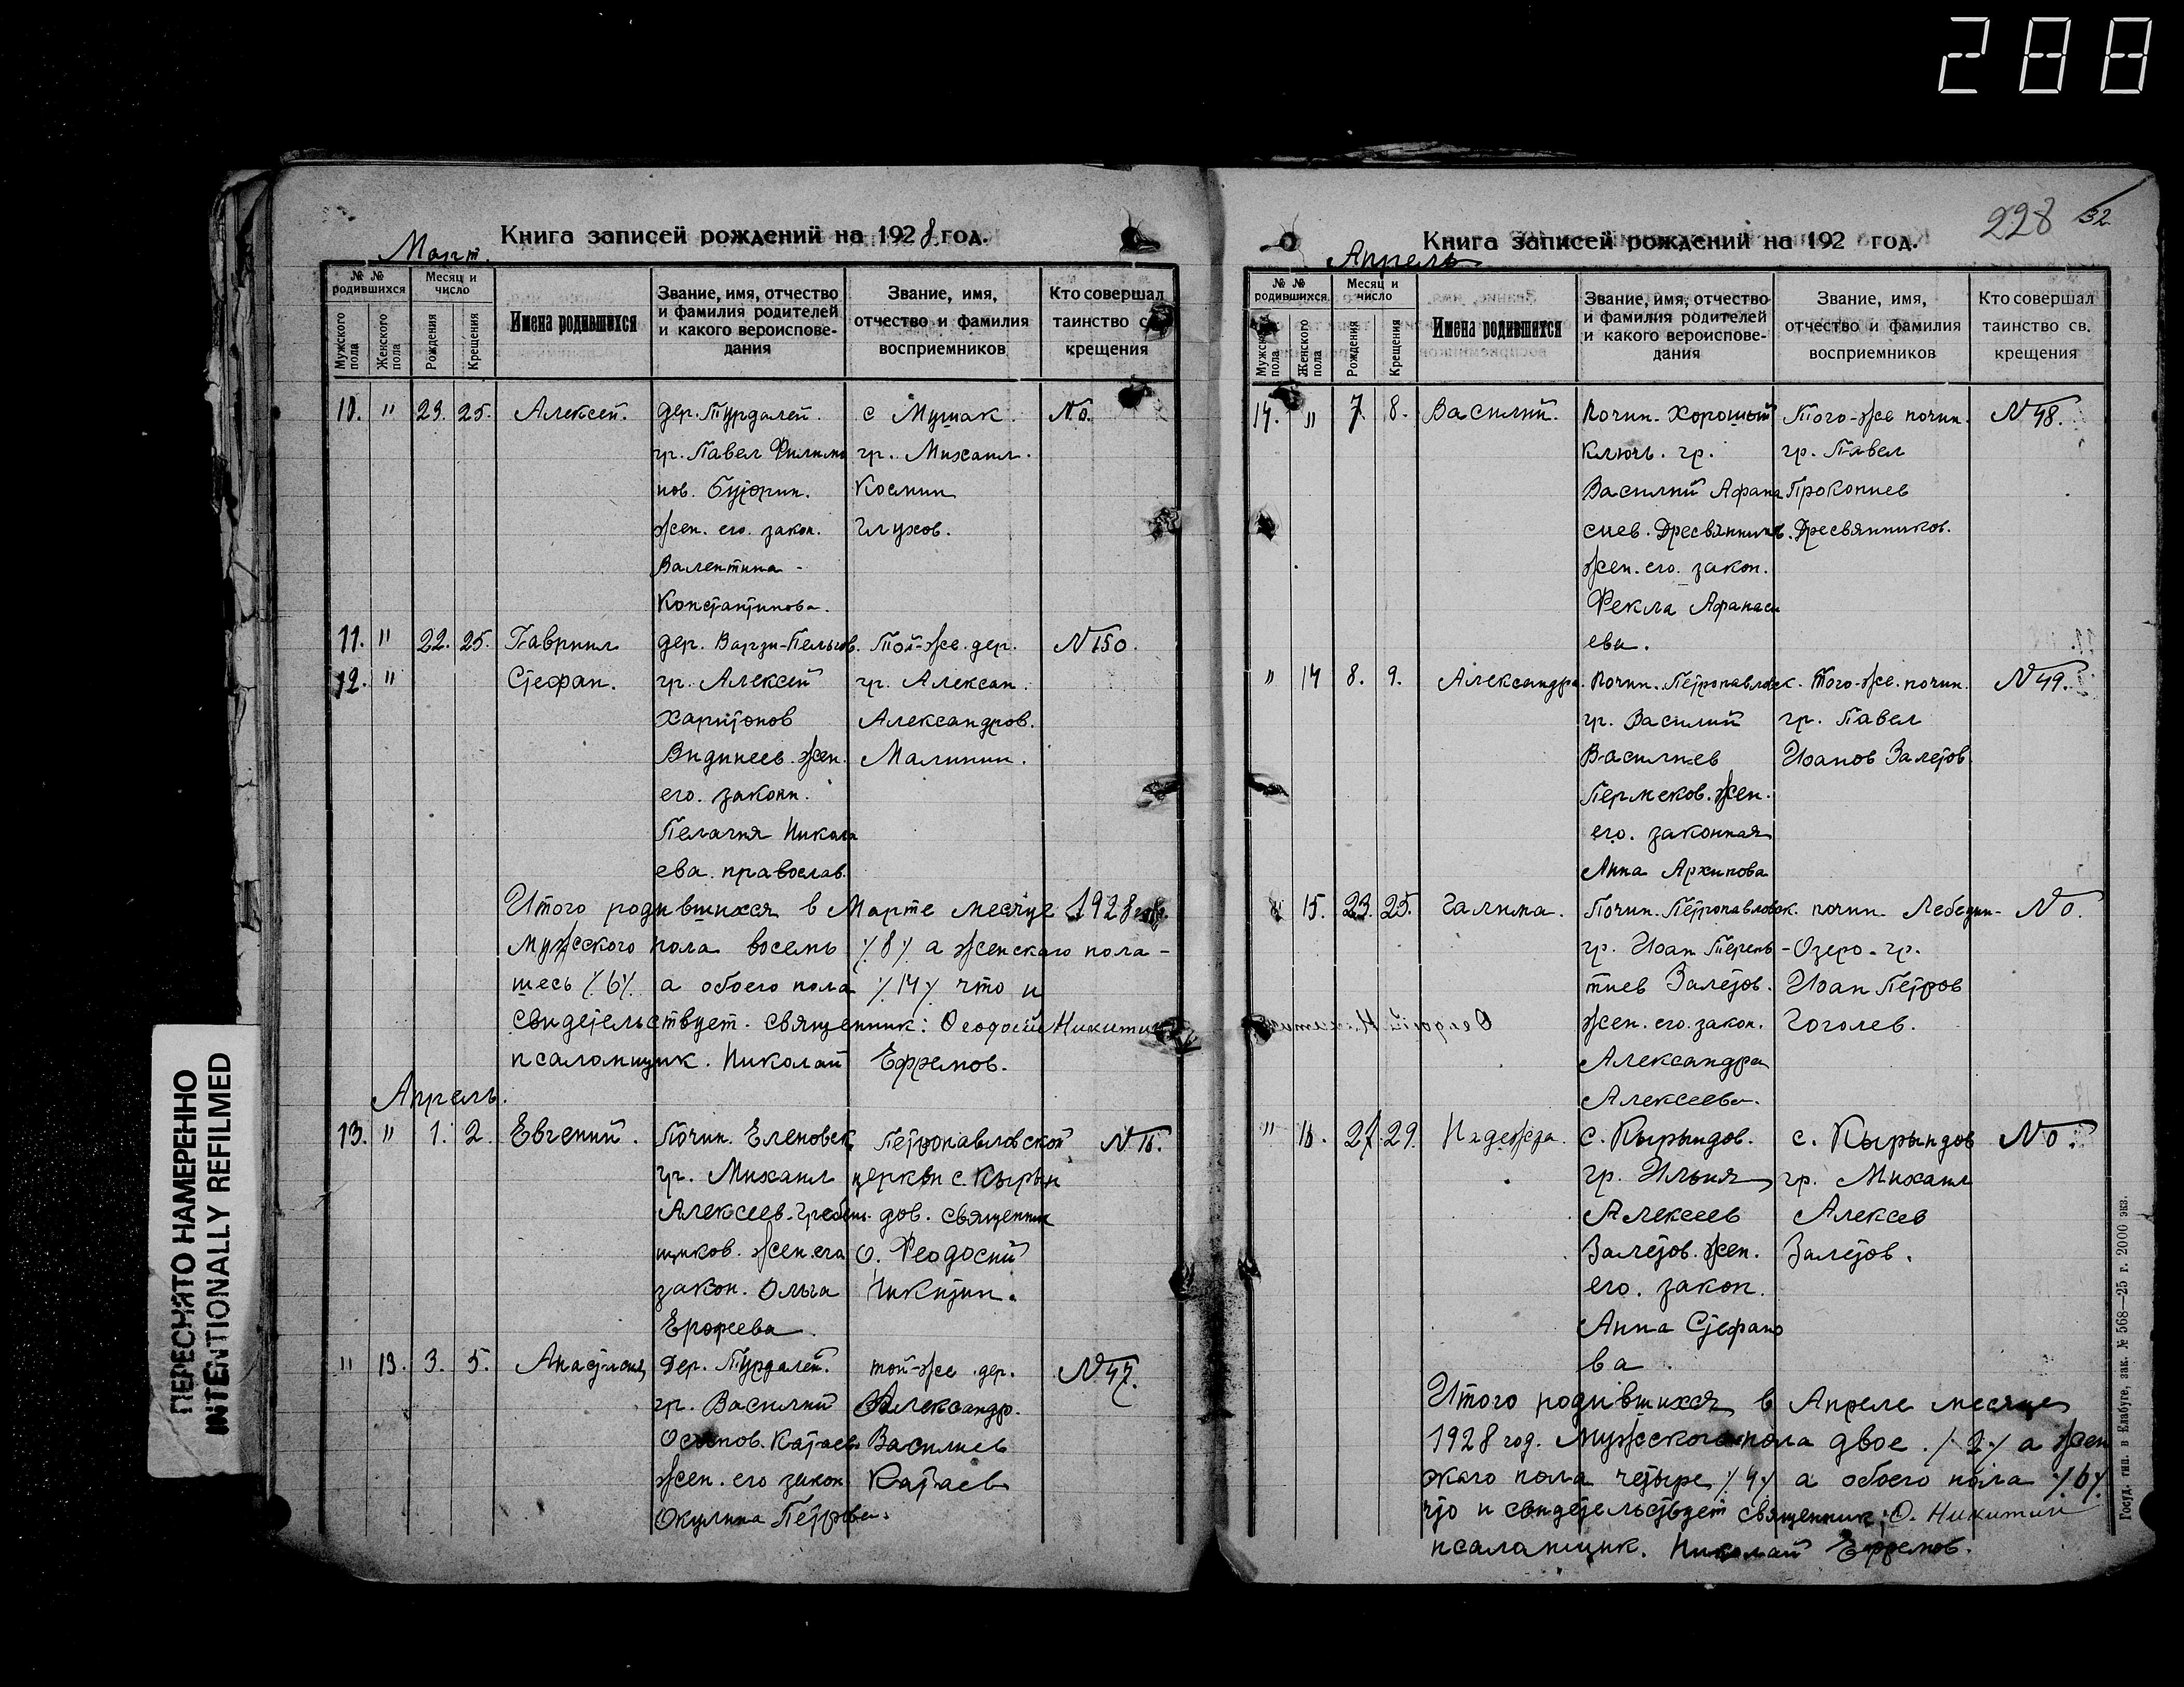 288
Книга записей рождений на 1928 год.
Март.
№ № родившихся
Мужского пола
Женского пола
Месяц и число
Рождения
Крещения
Имена родившихся
Звание, имя, отчество и фамилия родителей и какого вероисповедания
Звание, имя, отчество и фамилия восприемников
Кто совершал таинство св. крещения
10. " 23. 25. Алексей. дер. Турдалей. с Мушак. No.
гр. Павел Филимо гр. Михаил.
нов. Буторин. Космин
жен. его. закон. Глухов.
Валентина -
Константинова.
11. " 22. 25. Гавриил дер. Варзи-Пельгов. Той-же. дер. N 150.
12. " Стефан. гр. Алексей гр. Алексан.
Харитонов Александров.
Видинеев. жен. Малинин.
его. законн.
Пелагия Никола
ева. православ.
Итого родившихся в Марте месяце 1928 года.
мужского пола восемь /.8./ а женскаго пола -
шесь /.6./ а обоего пола /.14./ что и
свидетельствует. священник: Феодосий Никитин
псаломщик. Николай Ефремов.
Апрель.
13. " 1. 2. Евгений. Почин. Еленовск. Петропавловской N
гр. Михаил церкви с. Кырын
Алексеев. Гребен дов. священник
щиков. жен. его О. Феодосий
закон. Ольга Никитин.
Ерофеева.
" 13. 3. 5. Анастасия дер. Турдалей. той-же дер. N 47.
гр. Василий Александр.
Осипов. Катаев Василиев
жен. его закон Катаев
Окулина Петрова.
Книга записей рождений на 192 год.
228
32
Апрель
№ № родившихся
Мужского пола
Женского пола
Месяц и число
Рождения
Крещения
Имена родившихся
Звание, имя, отчество и фамилия родителей и какого вероисповедания
Звание, имя, отчество и фамилия восприемников
Кто совершал таинство св. крещения
14. " 7. 8. Василий. Почин. Хороший Того-же почин. N 48.
ключь. гр. гр. Павел
Василий Афана Прокопиев
сиев. Дресвянников. Дресвянников.
жен. его. закон.
Фекла Афанаси
ева.
" 14 8. 9. Александра. Почин. Петропавловск. Того-же. почин. N 49.
гр. Василий гр. Павел
Василиев Иоанов Залетов.
Пермеков. жен.
его. законная
Анна Архипова
15. 23. 25. Галина. Почин. Петропавловск. почин. Лебедин- No.
гр. Иоан Терень -Озеро. гр.
тиев Залетов. Иоан Петров
жен. его. закон. Гоголев.
Александра
Алексеева.
" 16. 27. 29. Надежда. с. Кырындов. с. Кырындов No.
гр. Илья гр. Михаил
Алексеев Алексев
Залетов. жен. Залетов.
его. закон.
Анна Стефано
ва.
Итого родившихся в Апреле месяце
1928 год. мужского пола двое. /.2./ а жен
скаго пола четыре /.4./ а обоего пола /.6./
что и свидетельствует священник: О. Никитин
псаломщик. Николай Ефремов.
Госуд. тип. в Елабуге, зак. № 568—25 г. 2000 экз.
ПЕРЕСНЯТО НАМЕРЕННО
INTENTIONALLY REFILMED